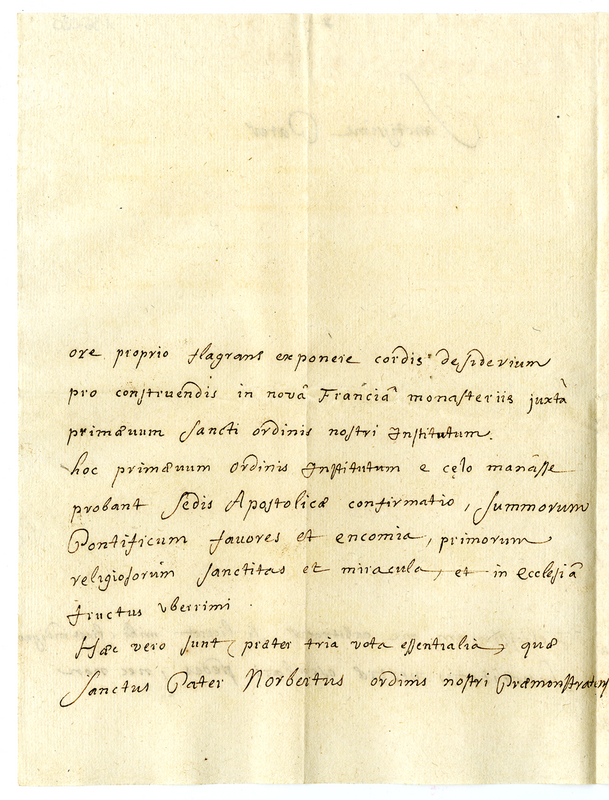 ore proprio flagrans exponere cordis desiderium
pro construendis in novâ Franciâ monasteriis juxtà
primævum sancti ordinis nostri Institutum.
hoc primævum ordinis Institutum e cęlo manâsse
probant sedis Apostolicæ confirmatio, summorum
Pontificum favores et encomia, primorum
religiosorum sanctitas et miracula, et in Ecclesiâ
fructus uberrimi.
Hæc vero sunt (præter tria vota essentialia) quæ
sanctus Pater Norbertus ordinis nostri